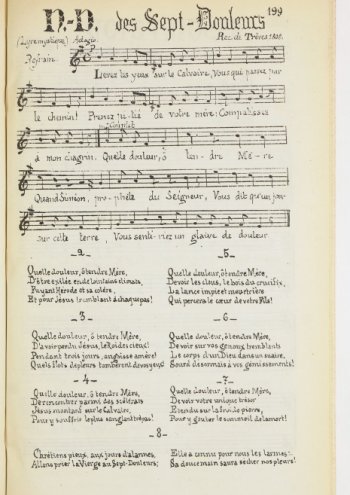 N.-D. des Sept-Douleurs 199
Adagio.
Rec. de Trèves 1801.
Refrain.
Levez les yeux sur le Calvaire, Vous qui passez par
le chemin! Prenez pitié de votre mère: Compatissez
Couplet
à mon chagrin. Quelle douleur, ô tendre Mère
Quand Siméon, prophète du Seigneur, Vous dit qu'un jour
sur cette terre, Vous sentiriez un glaive de douleur
- 2 -
Quelle douleur, ô tendre Mère,
D'être exilée en de lointains climats,
Fuyant Hérode et sa colère,
Et pour Jésus tremblant à chaque pas!
- 3 -
Quelle douleur, ô tendre Mère,
D'avoir perdu Jésus, le Roi des cieux!
Pendant trois jours, angoisse amère!
Quels flots de pleurs tombèrent de vos yeux!
- 4 -
Quelle douleur, ô tendre Mère,
De rencontrer parmi des scélérats
Jésus montant sur le Calvaire,
Pour y souffrir le plus sanglant trépas!
- 5 -
Quelle douleur, ô tendre Mère,
De voir les clous, le bois du crucifix,
La lance impie et meurtrière
Qui perça le cœur de votre Fils!
- 6 -
Quelle douleur, ô tendre Mère,
De voir sur vos genoux tremblants
Le corps d'un Dieu dans un suaire,
Sourd désormais à vos gémissements!
- 7 -
Quelle douleur, ô tendre Mère,
De voir votre unique trésor
Etendu sur la froide pierre,
Pour y goûter le sommeil de la mort!
- 8 -
Chrétiens pieux, aux jours d'alarmes,
Allons prier la Vierge au Sept-Douleurs;
Elle a connu pour nous les larmes:
Sa douce main saura sécher nos pleurs!